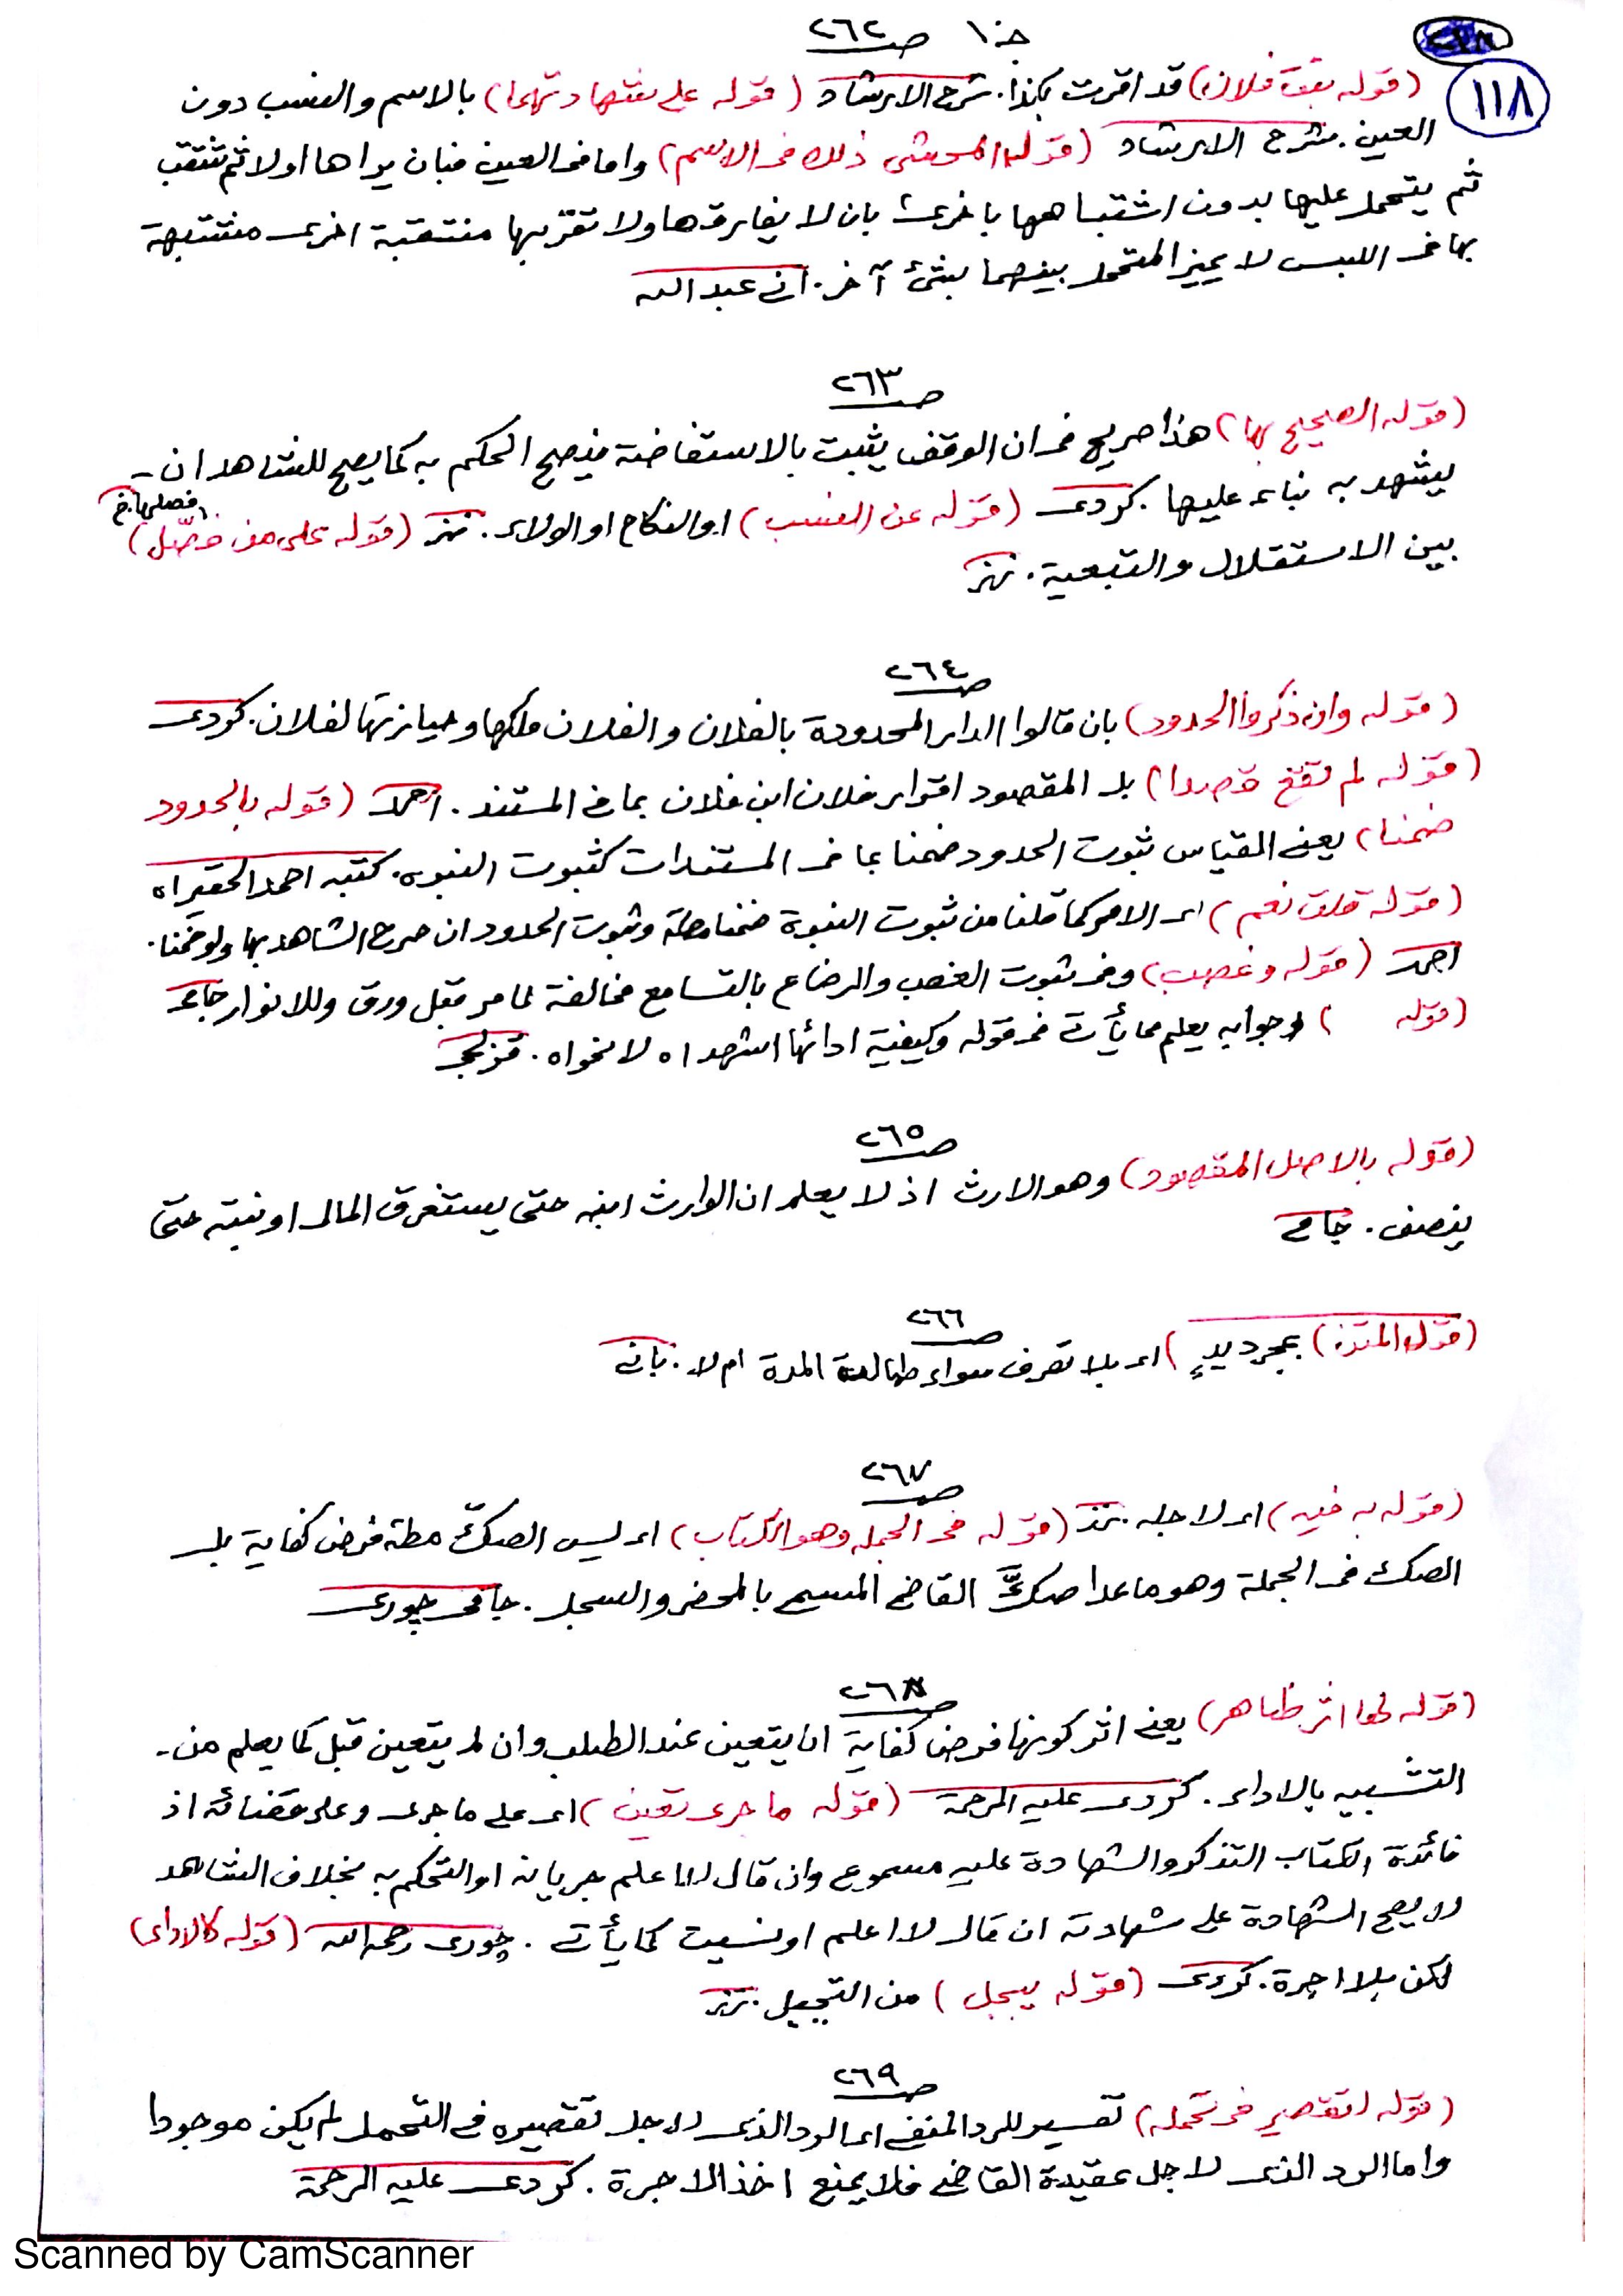 جـ ١٠ صـ ٢٦٢
١١٨
(قوله بنت فلان) قد اقرت بكذا. شرح الارشاد (قوله على شهادتهما) بالاسم والنسب دون
العين. شرح الارشاد (قوله المحشى ذلك فى الاسم) واما فى العين فبان يراها اولا ثم تنتقب
ثم يتحمل عليها بدون اشتباهها باخرى بان لا يفارقها ولا تقربها منتقبة اخرى مشتبهة
بها فى اللبس لا يميز المتحمل بينهما بشئ آخر. انى عبد الله
صـ ٢٦٣
(قوله الصحيح بها) هذا صريح فى ان الوقف يثبت بالاستفاضة فيصح الحكم به كما يصح للشاهد ان -
يشهد به بناء عليها. كردى (قوله عن النسب) او النكاح او الولاء. (قوله على من فصّل)
بين الاستقلال والتبعية.
صـ ٢٦٤
(قوله وان ذكروا الحدود) بان قالوا الدار المحدودة بالفلان والفلان ملكها وحيازتها لفلان. كردى
(قوله لم تقع قصدا) بل المقصود اقرار فلان ابن فلان بما فى المستند. احمد (قوله بالحدود
ضمنا) يعنى القياس ثبوت الحدود ضمنا بما فى المستندات كثبوت البنوه. كتبه احمد الحقير اه
(قوله قلت نعم) اى الامر كما قلنا من ثبوت البنوة ضمنا مطلقا وثبوت الحدود ان صرح الشاهد بها ولو ضمنا.
احمد (قوله وغصب) وفى ثبوت الغصب والرضاع بالتسامع مخالفة لما مر قبل ورق وللانوار جامى
(قوله ) وجوابه يعلم مما يأتى فى قوله وكيفية ادائها اشهد اه لا نحواه. قزلجى
صـ ٢٦٥
(قوله بالاصل المقصود) وهو الارث اذ لا يعلم ان الوارث ابنه حتى يستغرق المال او بنته حتى
ينصف. جامى
صـ ٢٦٦
(قوله المتن) بمجرد يدٍ) اى بلا تصرف سواء طالت المدة ام لا. بانى
صـ ٢٦٧
(قوله به فيه) اى لاجله. (قوله فى الجملة وهو الكتاب) اى ليس الصكّ مطلقا فرض كفاية بل
الصك فى الجملة وهو ما عدا صكّ القاضى المسمى بالمحضر والسجل. جامى چورى
صـ ٢٦٨
(قوله لها اثر ظاهر) يعنى اثر كونها فرض كفاية ان يتعين عند الطلب وان لم يتعين قبل كما يعلم من -
التشبيه بالاداء. كردى عليه الرحمة (قوله ما جرى تعين) اى على ما جرى وعلى قضائه اذ
فائدة الكتاب التذكر والشهادة عليه مسموع وان قال لا اعلم جريانه او التحكم به بخلاف الشاهد
لا يصح الشهادة على شهادته ان قال لا اعلم او نسيت كما يأتى. چورى رحمه الله (قوله كالاداء)
لكن بلا اجرة. كردى (قوله يبجل) من التبجيل.
صـ ٢٦٩
(قوله لتقصير فى تحمله) تفسير للرد المنفى اى الرد الذى لاجل تقصيره فى التحمل لم يكن موجودا
واما الرد الذى لاجل عقيدة القاضى فلا يمنع اخذ الاجرة. كردى عليه الرحمة
Scanned by CamScanner